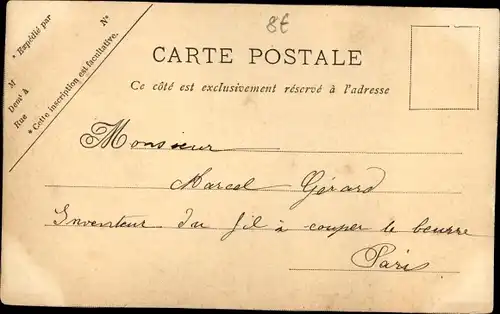 * Expédié par
M
N°
Demt à
Rue
* Cette inscription est facultative.
8€
CARTE POSTALE
Ce côté est exclusivement réservé à l'adresse
Monsieur
Marcel Gérard
Inventeur du fil à couper le beurre
Paris